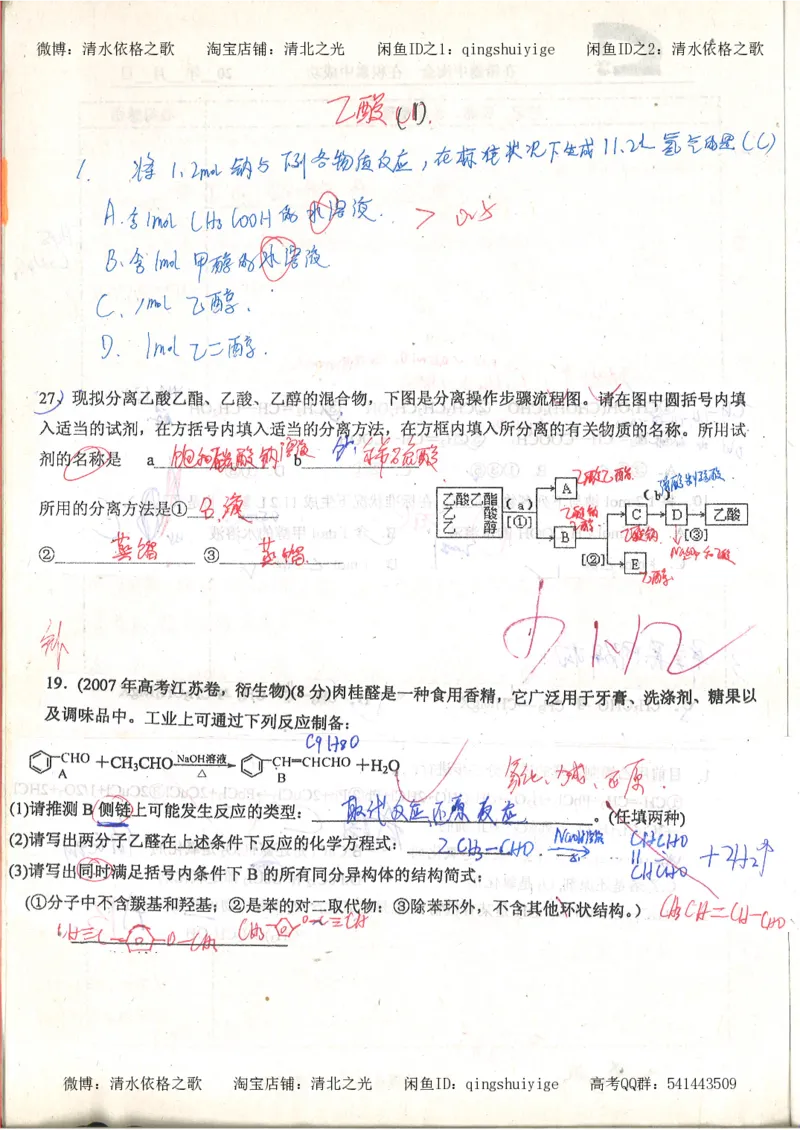 微博：清水依格之歌 淘宝店铺：清北之光 闲鱼ID之1：qingshuiyige 闲鱼ID之2：清水依格之歌
乙酸(1).
1. 将1.2mol钠与下列各物质反应，在标准状况下生成11.2L氢气的是(C)
A.含1mol CH3COOH的水溶液. > 0.5
B.含1mol 甲醇的水溶液
C. 1mol 乙醇.
D. 1mol 乙二醇.
27、现拟分离乙酸乙酯、乙酸、乙醇的混合物，下图是分离操作步骤流程图。请在图中圆括号内填
入适当的试剂，在方括号内填入适当的分离方法，在方框内填入所分离的有关物质的名称。所用试
剂的名称是 a 饱和碳酸钠溶液 b 稀硫酸
所用的分离方法是① 分液
② 蒸馏 ③ 蒸馏
乙酸乙酯
乙 酸
乙 醇
(a)
[①]
A 乙酸乙酯
B 乙酸钠 乙醇
C 乙酸钠
(b)
D
乙酸
[③]
[②]
E 乙醇
19．(2007年高考江苏卷，衍生物)(8分)肉桂醛是一种食用香精，它广泛用于牙膏、洗涤剂、糖果以
及调味品中。工业上可通过下列反应制备：
C9H8O
CHO +CH3CHO NaOH溶液 △ CH=CHCHO +H2O
A B
氧化、加成、还原.
(1)请推测B侧链上可能发生反应的类型： 取代反应,还原反应 。(任填两种)
(2)请写出两分子乙醛在上述条件下反应的化学方程式： 2CH3-CHO NaOH溶液 △ CHCHO = CHCHO +2H2↑
(3)请写出同时满足括号内条件下B的所有同分异构体的结构简式：
(①分子中不含羰基和羟基；②是苯的对二取代物；③除苯环外，不含其他环状结构。) CH3CH=CH-CHO
CH≡C- -O-CH3 CH3- -O-C≡CH
微博：清水依格之歌 淘宝店铺：清北之光 闲鱼ID：qingshuiyige 高考QQ群：541443509